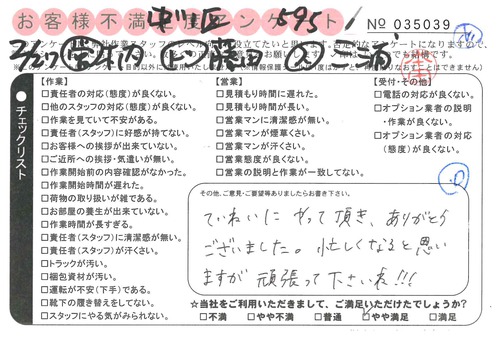 お客様不満足度アンケート
中川区 595
No 035039
2/27
藤田
三浦
チェックリスト
【作業】
□責任者の対応(態度)が良くない。
□他のスタッフの対応(態度)が良くない。
□作業を見ていて不安がある。
□責任者(スタッフ)に好感が持てない。
□お客様への挨拶が出来ていない。
□ご近所への挨拶・気遣いが無い。
□作業開始前の内容確認がなかった。
□作業開始時間が遅れた。
□荷物の取り扱いが雑である。
□お部屋の養生が出来ていない。
□作業時間が長すぎる。
□責任者(スタッフ)に清潔感が無い。
□責任者(スタッフ)が汗くさい。
□トラックが汚い。
□梱包資材が汚い。
□運転が不安(下手)である。
□靴下の履き替えをしてない。
□スタッフにやる気がみられない。
【営業】
□見積もり時間に遅れた。
□見積もり時間が長い。
□営業マンに清潔感が無い。
□営業マンが煙草くさい。
□営業マンが汗くさい。
□営業態度が良くない。
□営業の説明と作業が一致してない。
【受付・その他】
□電話の対応が良くない。
□オプション業者の説明
・作業が良くない。
□オプション業者の対応
(態度)が良くない。
その他、ご意見・ご要望等ありましたらお書き下さい。
ていねいに やって頂き、ありがとう
ございました。忙しくなると思い
ますが 頑張って下さいネ!!!
☆当社をご利用いただきまして、ご満足いただけたでしょうか?
□不満 □やや不満 □普通 □やや満足 □満足